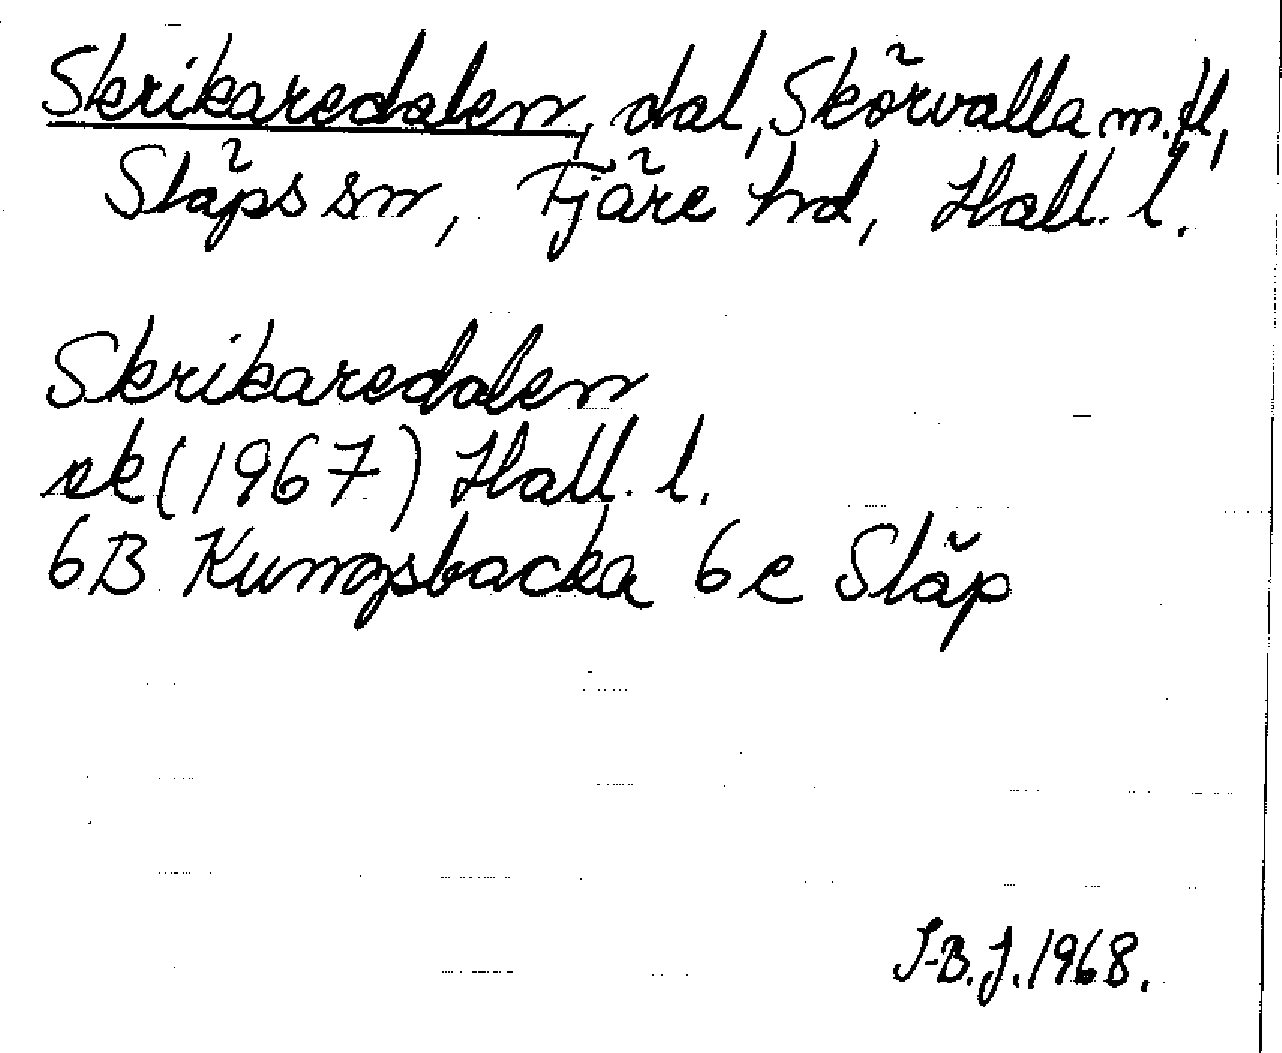 Skrikaredalen, dal, Skörvalla m.fl,
Släps sn, Fjäre hd, Hall. l.
Skrikaredalen
ek (1967) Hall. l.
6B Kungsbacka 6e Släp
I-B.J. 1968.